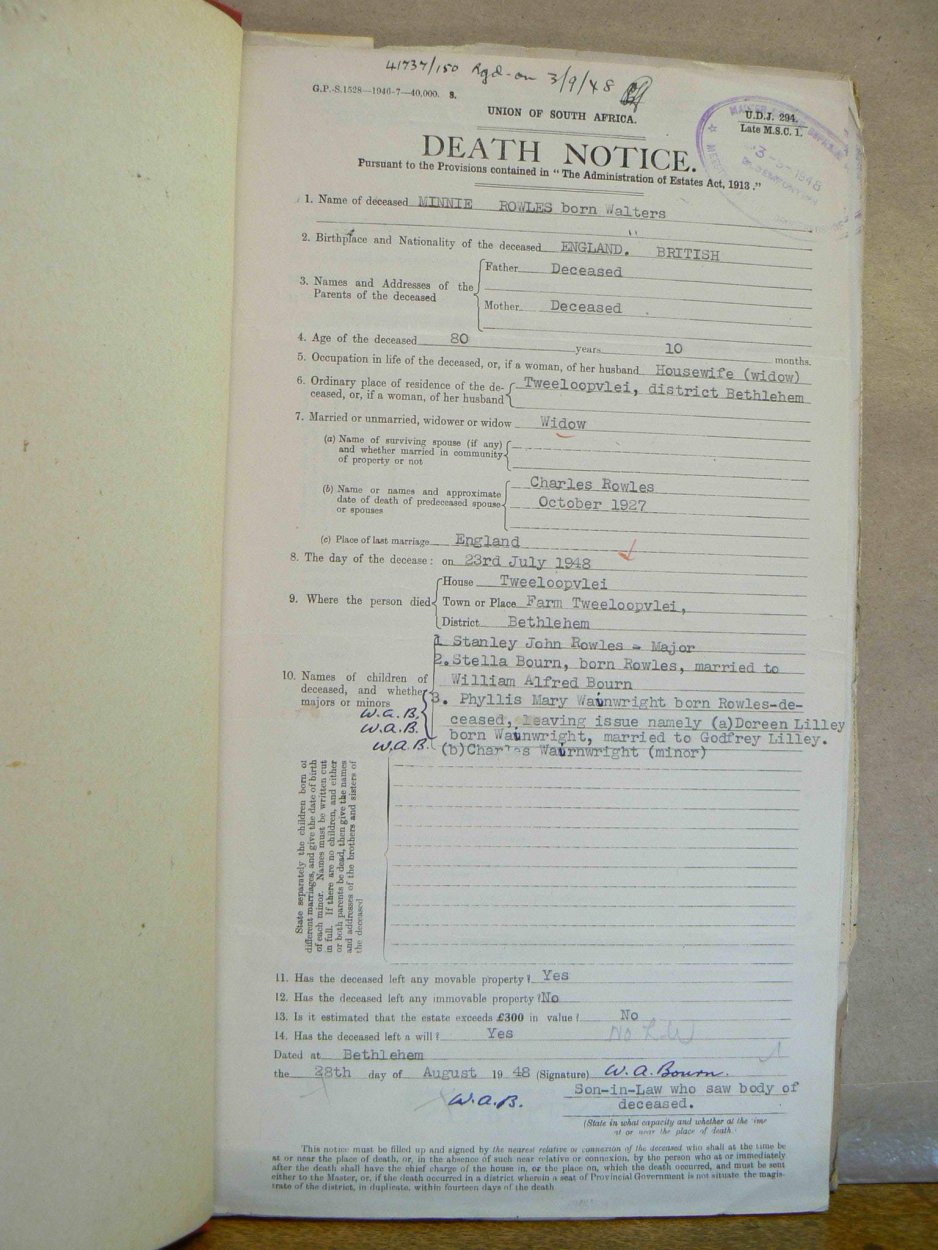 41737/150 Rgd-on 3/9/48
G.P.-S.1528—1946-7—40,000. S.
UNION OF SOUTH AFRICA.
U.D.J. 294.
Late M.S.C. 1.
DEATH NOTICE.
Pursuant to the Provisions contained in "The Administration of Estates Act, 1913."
1. Name of deceased MINNIE ROWLES born Walters
2. Birthplace and Nationality of the deceased ENGLAND. BRITISH
3. Names and Addresses of the Parents of the deceased
Father Deceased
Mother Deceased
4. Age of the deceased 80 years 10 months.
5. Occupation in life of the deceased, or, if a woman, of her husband Housewife (widow)
6. Ordinary place of residence of the de-
ceased, or, if a woman, of her husband
Tweeloopvlei, district Bethlehem
7. Married or unmarried, widower or widow Widow
(a) Name of surviving spouse (if any)
and whether married in community
of property or not
(b) Name or names and approximate
date of death of predeceased spouse
or spouses
Charles Rowles
October 1927
(c) Place of last marriage England
8. The day of the decease: on 23rd July 1948
9. Where the person died
House Tweeloopvlei
Town or Place Farm Tweeloopvlei,
District Bethlehem
10. Names of children of
deceased, and whether
majors or minors
W.A.B.
W.A.B.
W.A.B.
1 Stanley John Rowles - Major
2. Stella Bourn, born Rowles, married to
William Alfred Bourn
3. Phyllis Mary Wainwright born Rowles-de-
ceased, leaving issue namely (a)Doreen Lilley
born Wainwright, married to Godfrey Lilley.
(b)Charles Wainwright (minor)
State separately the children born of
different marriages, and give the date of birth
of each minor. Names must be written out
in full. If there are no children, and either
or both parents be dead, then give the names
and addresses of the brothers and sisters of
the deceased
11. Has the deceased left any movable property? Yes
12. Has the deceased left any immovable property? No
13. Is it estimated that the estate exceeds £300 in value? No
14. Has the deceased left a will? Yes
Dated at Bethlehem
the 28th day of August 1948 (Signature) W. A. Bourn.
W.A.B.
Son-in-Law who saw body of
deceased.
(State in what capacity and whether at the time
at or near the place of death
This notice must be filled up and signed by the nearest relative or connexion of the deceased who shall at the time be
at or near the place of death, or, in the absence of such near relative or connexion, by the person who at or immediately
after the death shall have the chief charge of the house in, or the place on, which the death occurred, and must be sent
either to the Master, or, if the death occurred in a district wherein a seat of Provincial Government is not situate the magis-
trate of the district, in duplicate, within fourteen days of the death